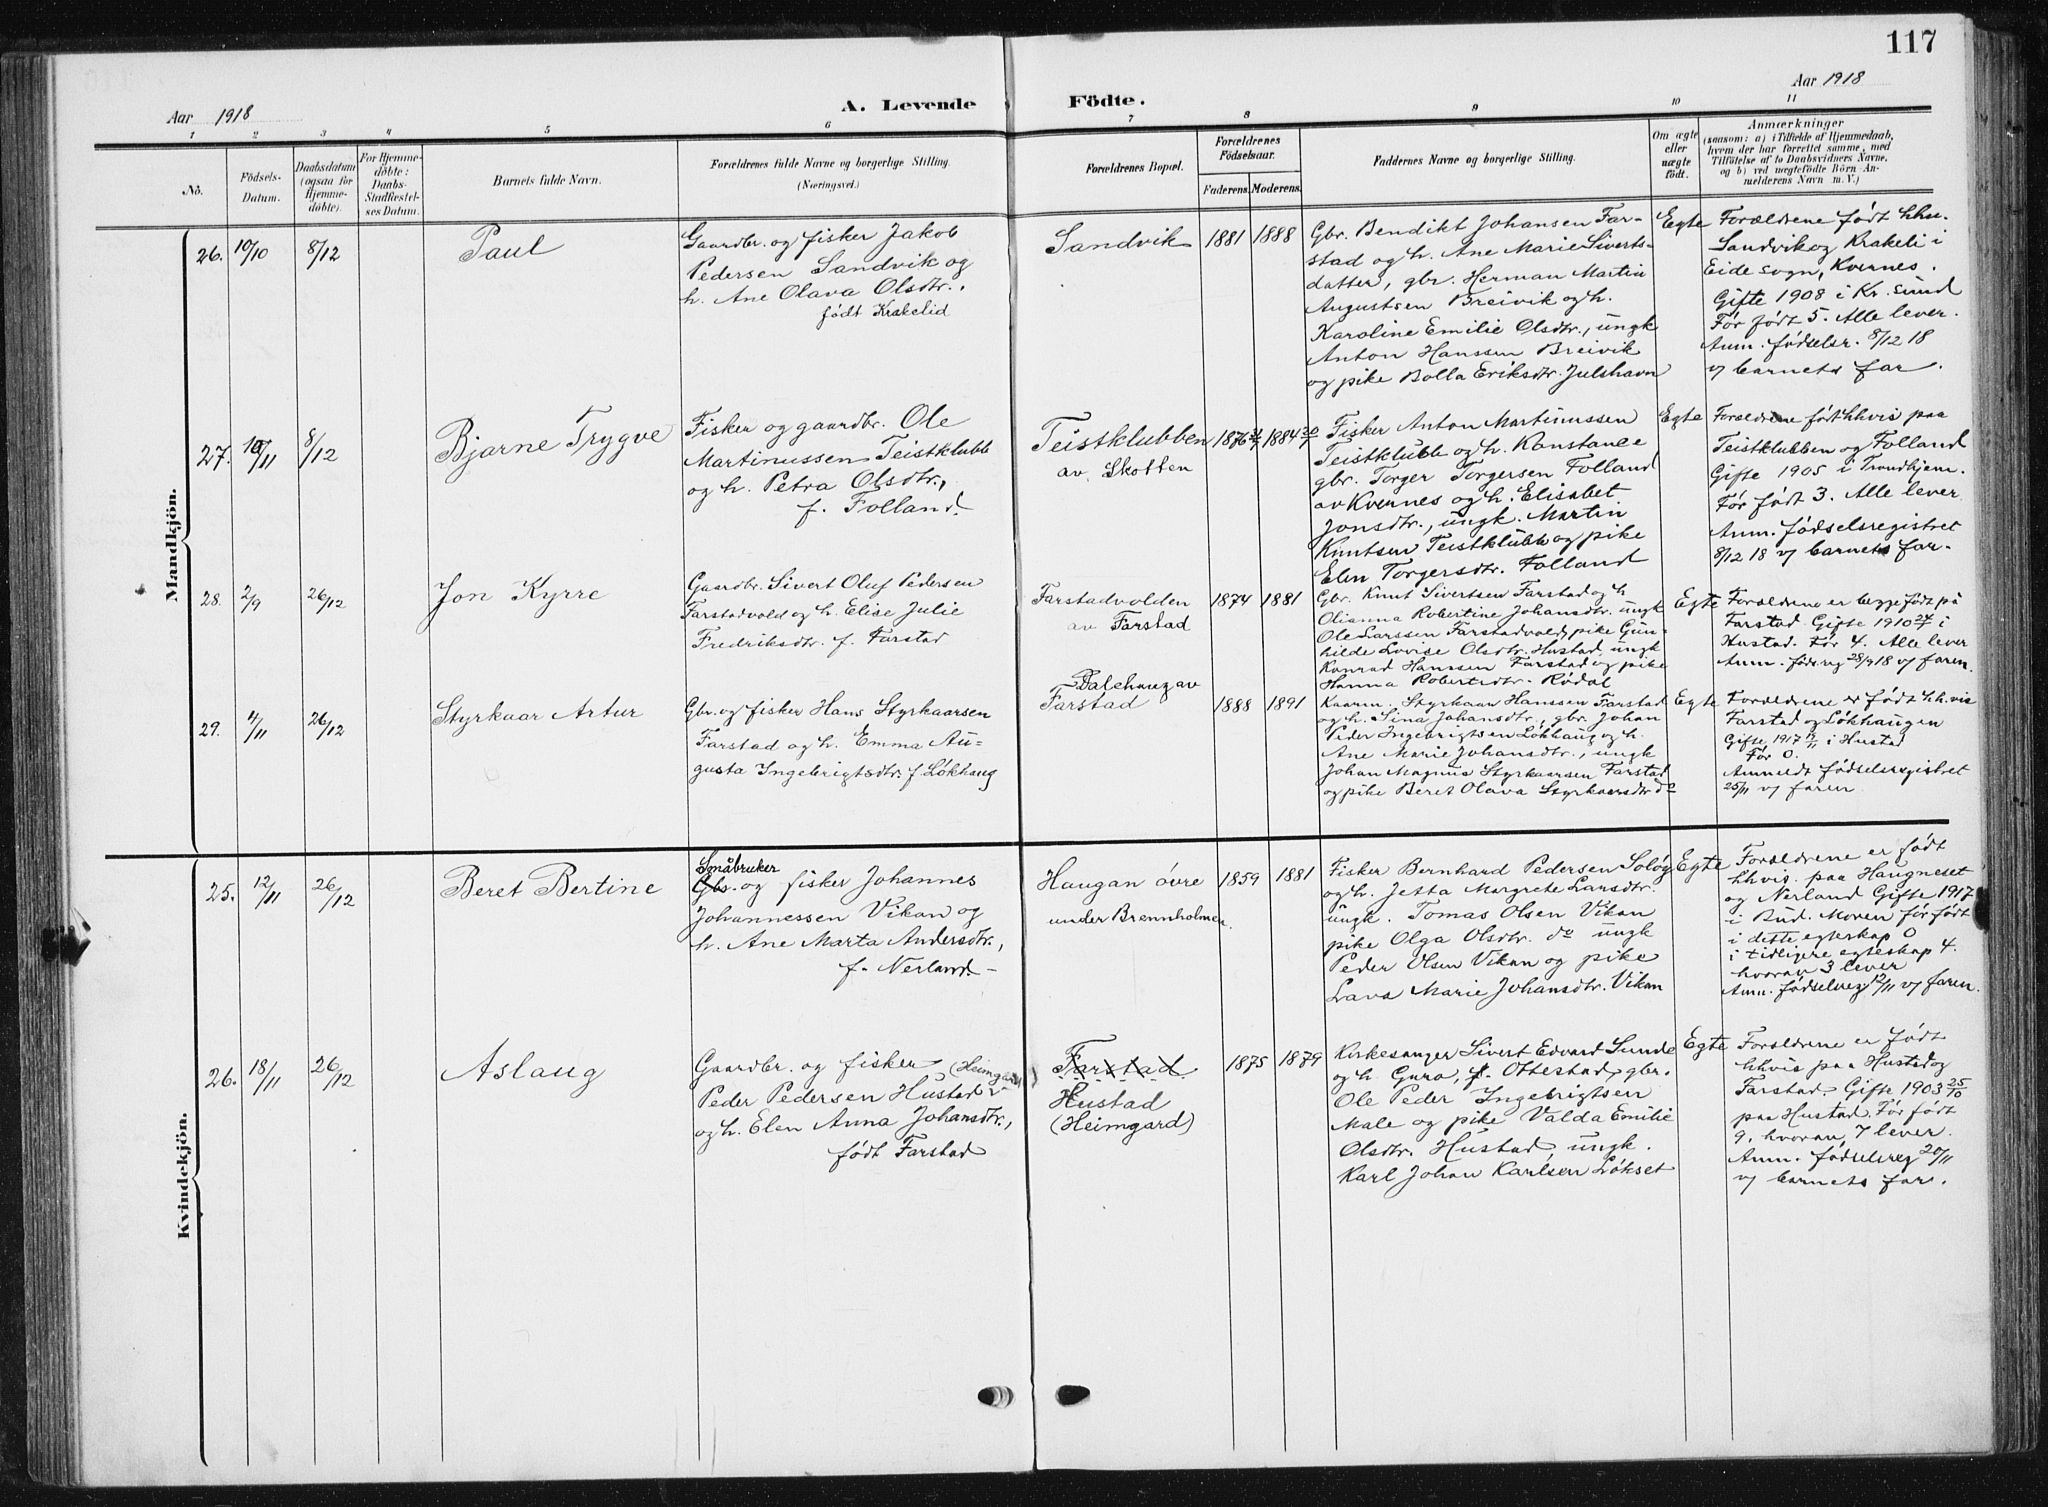 117
Aar 1918
A. Levende Födte.
Aar 1918
1 2 3 4 5 6 7 8 9 10 11
No.
Födsels-
Datum.
Daabsdatum
(ogsaa for
Hjemme-
döbte).
For Hjemme-
döbte:
Daabs-
Stadfestel-
ses Datum.
Barnets fulde Navn.
Forældrenes fulde Navne og borgerlige Stilling.
(Næringsvei.)
Forældrenes Bopæl.
Forældrenes
Födselsaar.
Faderens. Moderens.
Faddernes Navne og borgerlige Stilling.
Om ægte
eller
uægte
födt.
Anmærkninger
(saasom: a) i Tilfælde af Hjemmedaab,
hvem der har forrettet samme, med
Tilföielse af to Daabsvidners Navne,
og b) ved uægtefödte Börn An-
melderens Navn m. V.)
Mandkjön.
26. 10/10 8/12
Paul
Gaardbr. og fisker Jakob
Pedersen Sandvik og
h. Ane Olava Olsdtr.,
født Krakelid
Sandvik 1881 1888
Gbr. Bendikt Johansen Far-
stad og h. Ane Marie Siverts-
datter, gbr. Herman Martin
Augustsen Breivik og h.
Karoline Emilie Olsdtr., ungk
Anton Hanssen Breivik
og pike Bolla Eriksdtr. Julshavn
Egte
Forældrene født hhv.
Sandvik og Krakeli i
Eide sogn, Kvernes.
Gifte 1908 i Kr. sund
Før født 5. Alle lever.
Anm. fødselsr. 8/12 18
v/ barnets far.
27. 10/11 8/12
Bjarne Trygve
Fisker og gaardbr. Ole
Martinussen Teistklubb
og h. Petra Olsdtr.,
f. Folland.
Teistklubben
av Skotten
1876 1884
Fisker Anton Martinussen
Teistklubb og h. Konstanse
gbr. Torger Torgersen Folland
av Kvernes og h. Elisabet
Jonsdtr., ungk. Martin
Knutsen Teistklubb og pike
Elen Torgersdtr. Folland
Egte
Forældrene født hhvis paa
Teistklubben og Folland
Gifte 1905 i Trondhjem.
Før født 3. Alle lever
Anm. fødselsregistret
8/12 18 v/ barnets far.
28. 2/9 26/12
Jon Kyrre
Gaardbr. Sivert Oluf Pedersen
Farstadvold og h. Elise Julie
Fredriksdtr. f. Farstad
Farstadvolden
av Farstad
1874 1881
Gbr. Knut Sivertsen Farstad og h
Olianna Robertine Johansdtr. ungk
Ole Larssen Farstadvold, pike Gun-
hilde Lovise Olsdtr. Hustad, ungk
Konrad Hanssen Farstad og pike
Hanna Robertsdtr. Rødal
Egte
Forældrene er begge født på
Farstad Gifte 1910 24/7 i
Hustad. Før 4. Alle lever
Anm. føds.reg 28/9 18 v/ faren.
29. 11/11 26/12
Styrkaar Artur
Gbr. og fisker Hans Styrkaarsen
Farstad og h. Emma Au-
gusta Ingebrigtsdtr. f. Løkhaug
Dalehaug av
Farstad
1888 1891
Kaarm. Styrkaar Hanssen Farstad
og h. Sina Johansdtr., gbr. Johan
Peder Ingebrigtsen Løkhaug og h.
Ane Marie Johansdtr., ungk
Johan Magnus Styrkaarsen Farstad
og pike Beret Olava Styrkaarsdtr do
Egte
Forældrene er født hh.vis
Farstad og Løkhaugen
Gifte 1917 i Hustad
Før 0.
Anmeldt fødselsregistret
25/11 v/ faren.
Kvindekjön.
25. 12/11 26/12
Beret Bertine
Småbruker
Gbr. og fisker Johannes
Johannessen Vikan og
h. Ane Marta Andersdtr.,
f. Nerland.
Haugan øvre
under Brennholmen
1859 1881
Fisker Bernhard Pedersen Soløy
og h. Jetta Margrete Larsdtr.
ungk. Tomas Olsen Vikan
pike Olga Olsdtr. do ungk
Peder Olsen Vikan og pike
Lava Marie Johansdtr. Vikan
Egte
Forældrene er født
hhvis. paa Haugneset
og Nerland Gifte 1917
i Bud. Moren før født
i dette egteskap 0
i tidligere egteskap 4.
hvorav 3 lever
Anm. fødselreg 12/11 v/ faren.
26. 18/11 26/12
Aslaug
Gaardbr. og fisker (Heimgard)
Peder Pedersen Hustad
og h. Elen Anna Johansdtr.,
født Farstad
Farstad
Hustad
(Heimgard)
1875 1879
Kirkesanger Sivert Edvard Sunde
og h. Guro, f. Ottestad, gbr.
Ole Peder Ingebrigtsen
Male og pike Valda Emilie
Olsdtr. Hustad, ungk.
Karl Johan Karlsen Løkset
Egte
Forældrene er født
hhvis paa Hustad og
Farstad. Gifte 1903 25/10
paa Hustad. Før født
9, hvorav 7 lever.
Anm. fødselsreg 20/11
v/ barnets far.